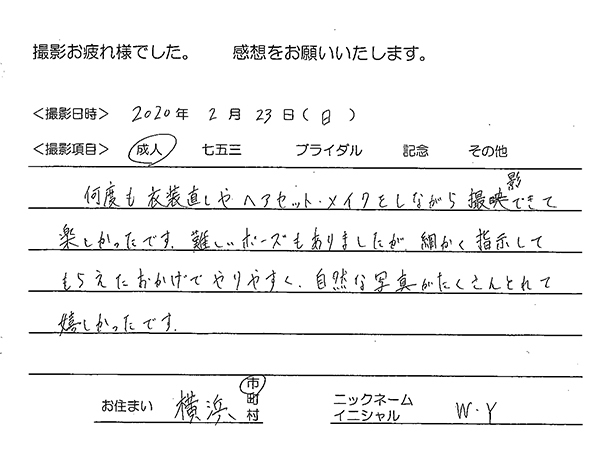 撮影お疲れ様でした。　　感想をお願いいたします。
＜撮影日時＞ 2020 年 2 月 23 日 ( 日 )
＜撮影項目＞ 成人　七五三　ブライダル　記念　その他
何度も衣装直しやヘアセット・メイクをしながら撮影できて
楽しかったです。難しいポーズもありましたが、細かく指示して
もらえたおかげでやりやすく、自然な写真がたくさんとれて
嬉しかったです。
お住まい 横浜 市 町 村　ニックネーム イニシャル W・Y